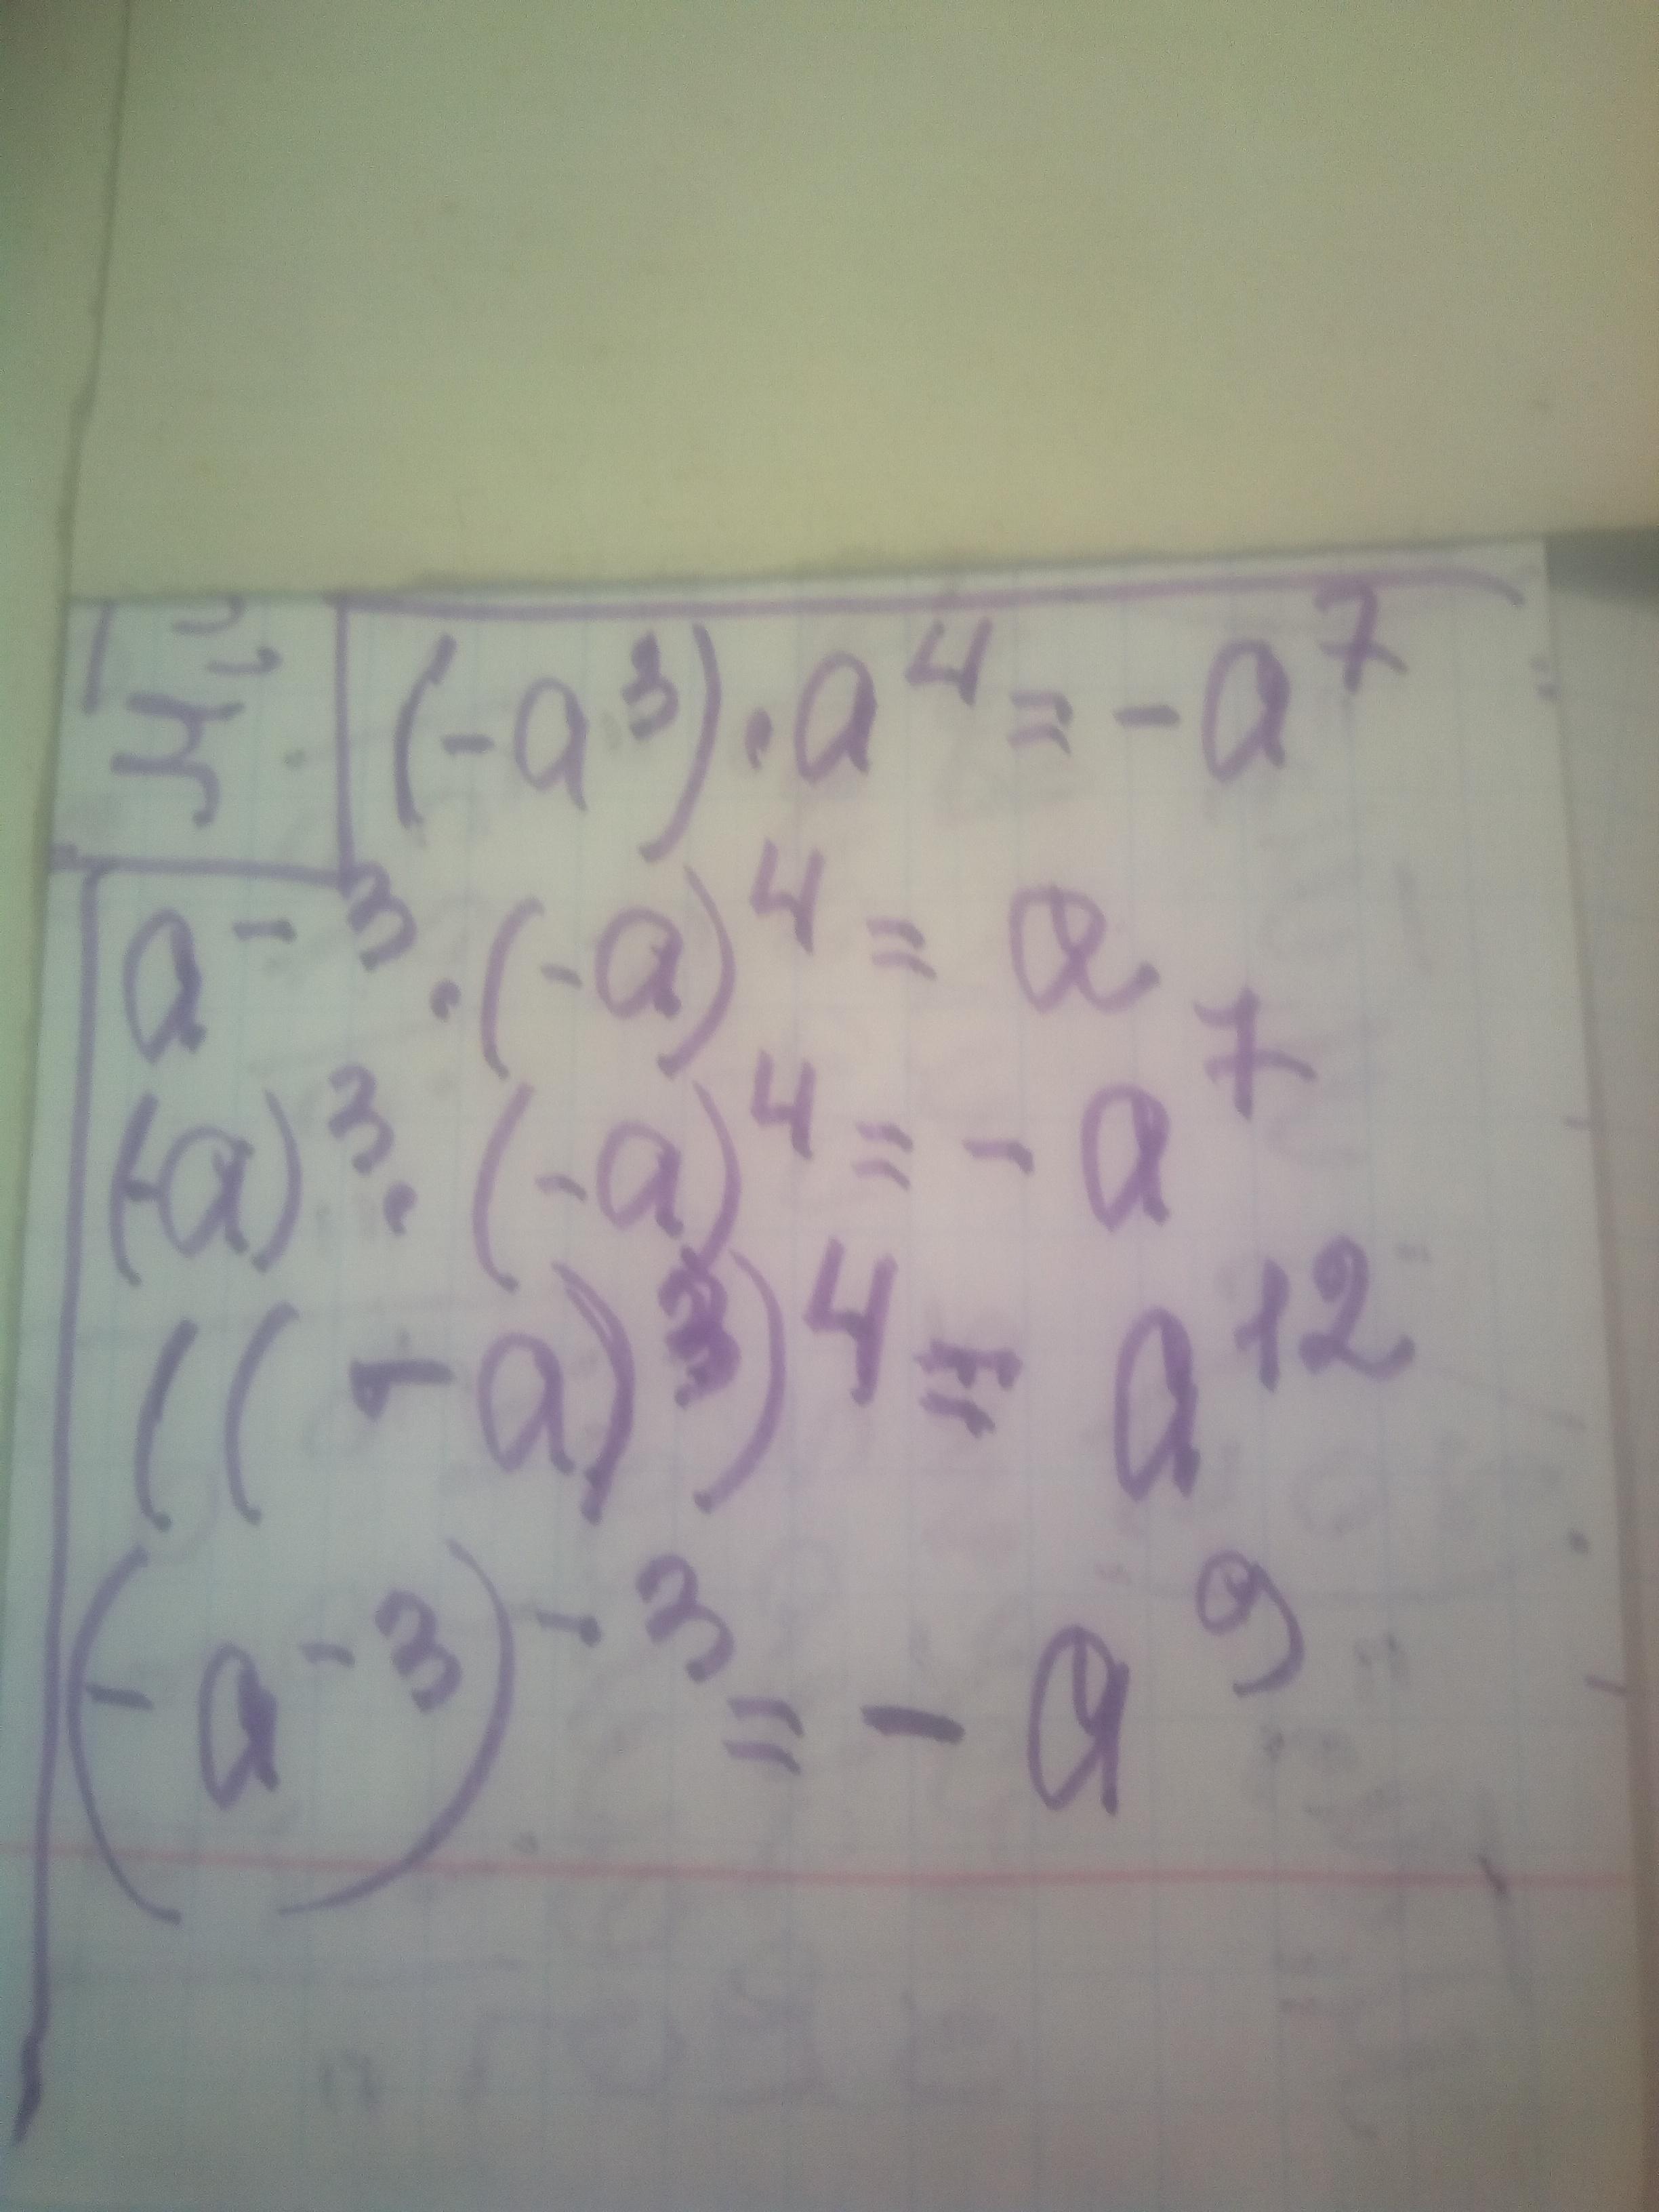 (-a³)·a⁴=-a⁷
a⁻³·(-a)⁴=a
(-a)³·(-a)⁴=-a⁷
((-a)³)⁴=a¹²
(-a⁻³)⁻³=-a⁹